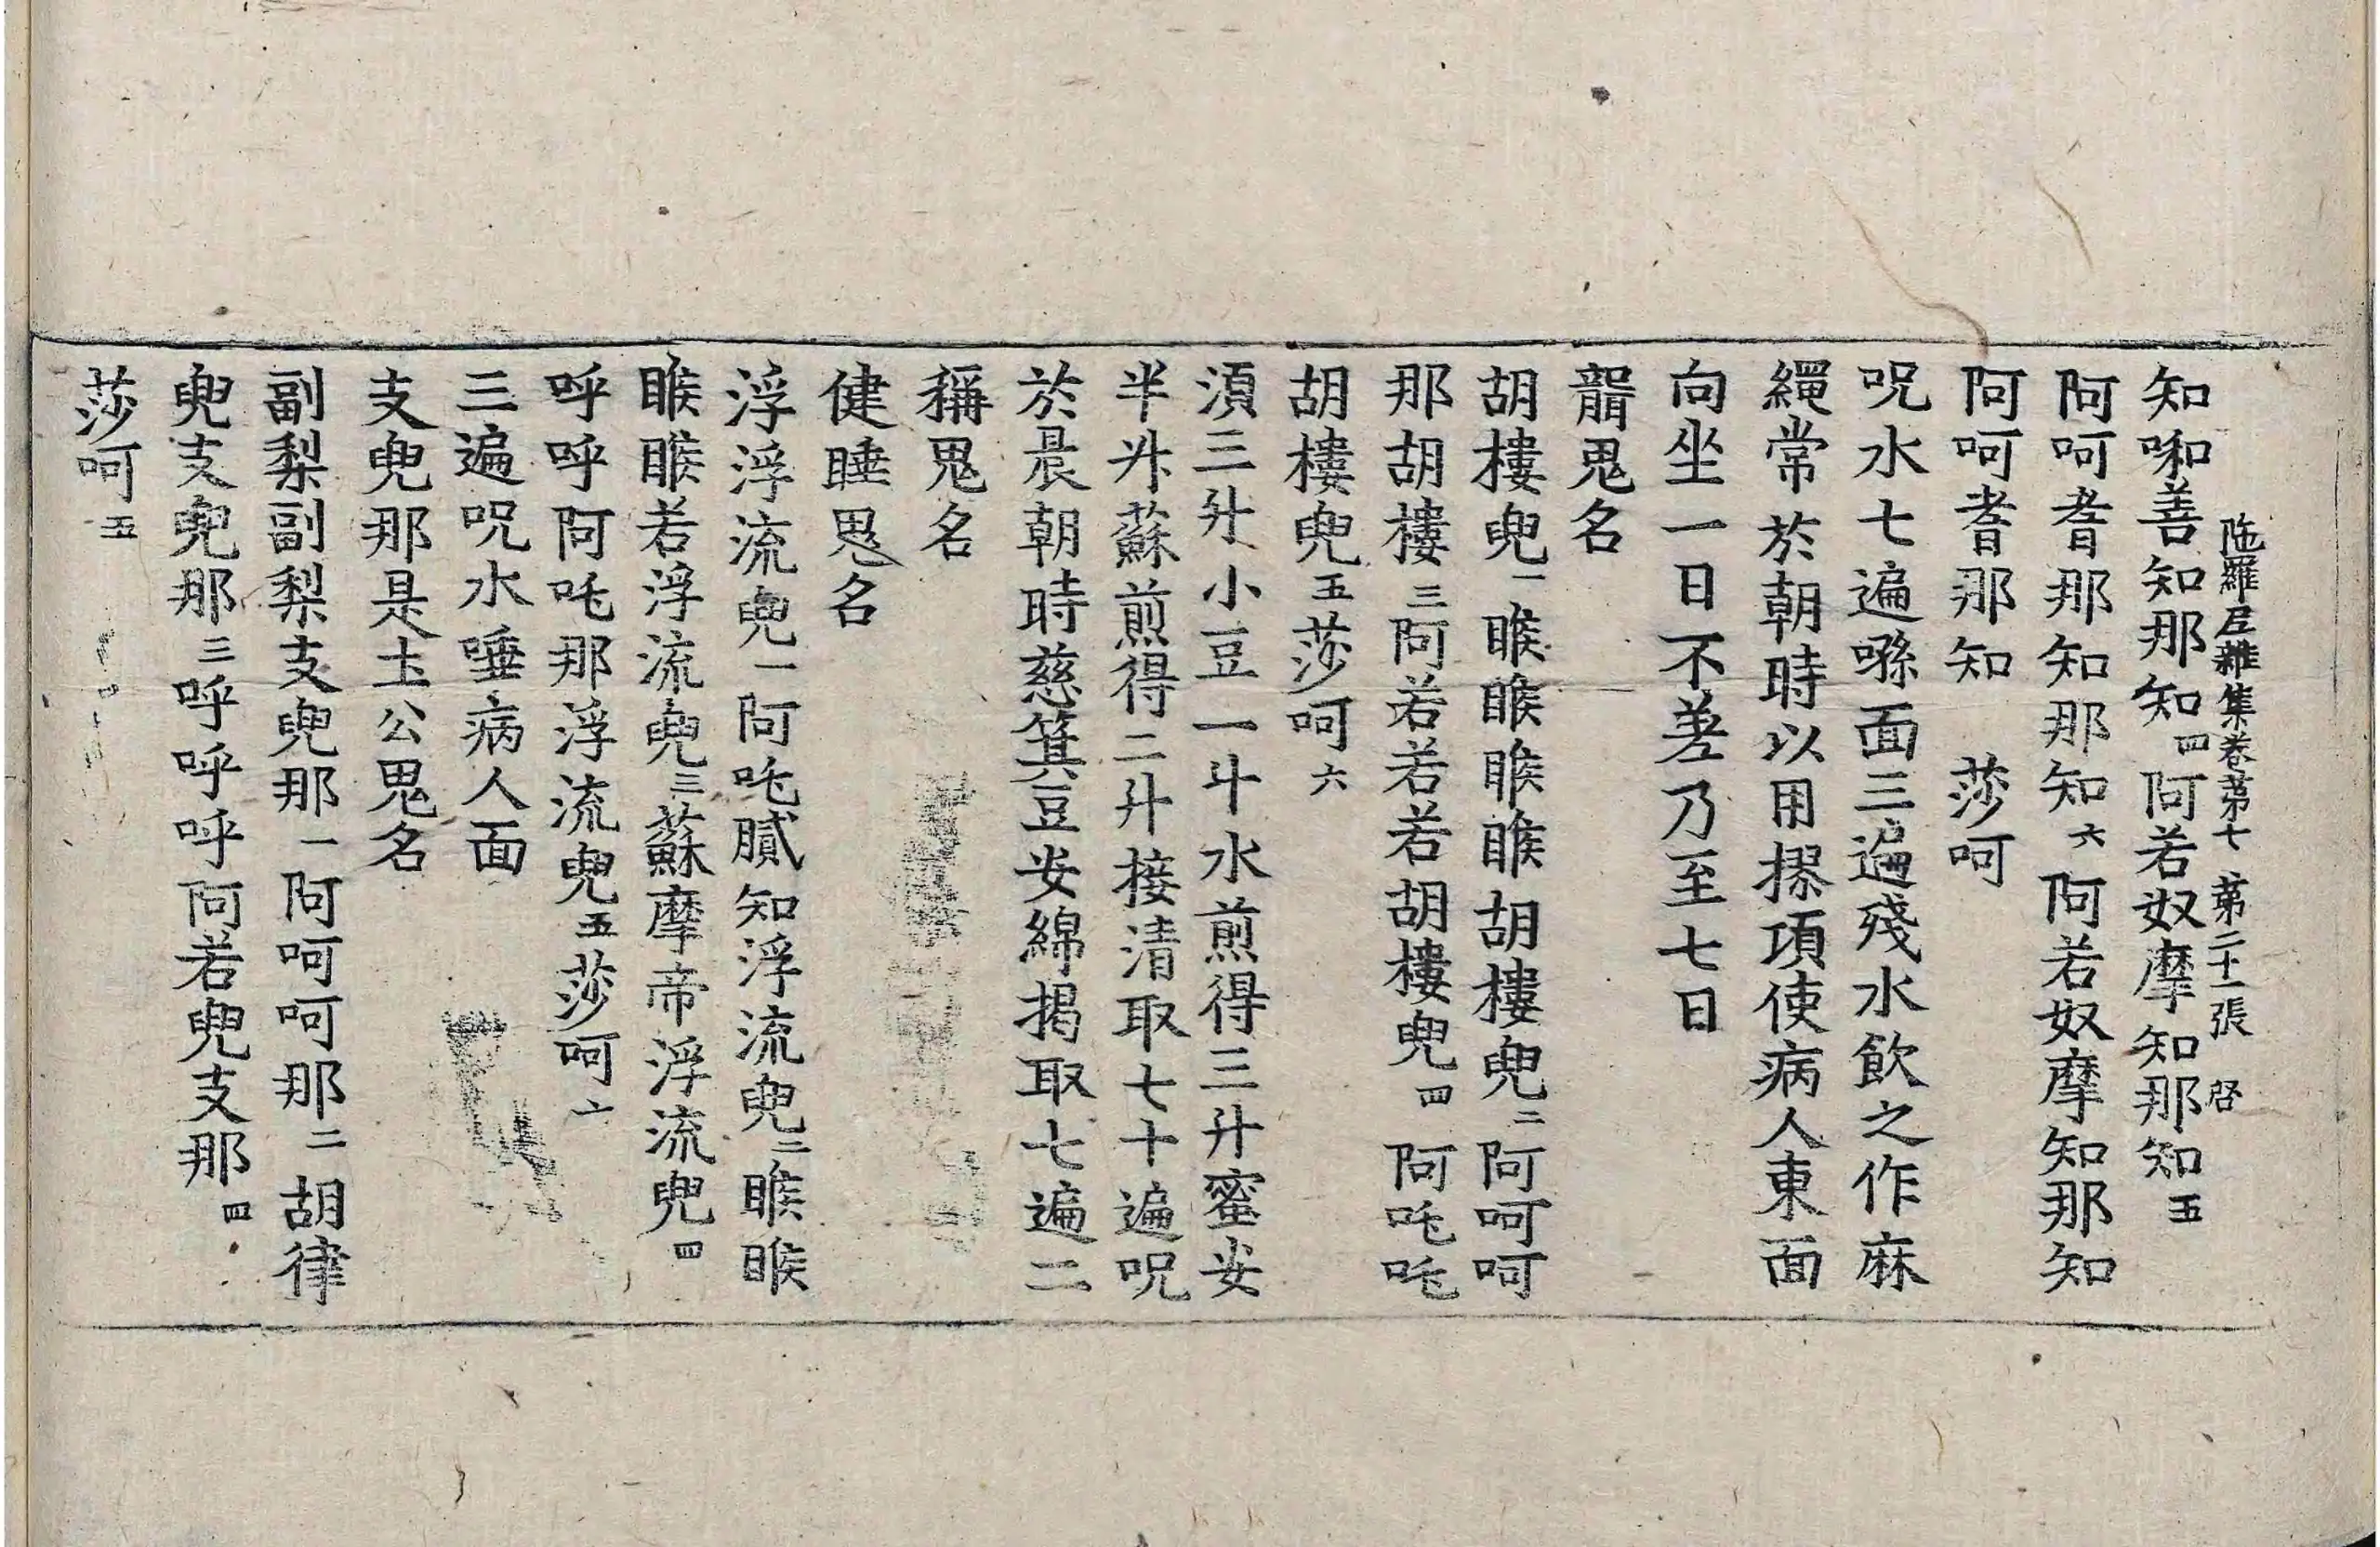 陁羅尼雜集卷苐七 苐二十一張 啓
知啝善知那知四阿若奴摩知那知五
阿呵耆那知那知六阿若奴摩知那知
阿呵耆那知 莎呵
呪水七遍噀面三遍殘水飲之作麻
繩常於朝時以用摎項使病人東面
向坐一日不差乃至七日
聾鬼名
胡樓兜一睺睺睺睺胡樓兜二阿呵呵
那胡樓三阿若若若胡樓兜四阿吒吒
胡樓兜五莎呵六
湏三升小豆一斗水煎得三升蜜安
半升蘇煎得二升接清取七十遍呪
於晨朝時慈箕豆安綿揭取七遍二
稱鬼名
健睡鬼名
浮浮流兜一阿吒膩知浮流兜二睺睺
睺睺若浮流兜三蘇摩帝浮流兜四
呼呼阿吒那浮流兜五莎呵六
三遍呪水唾病人面
支兜那是土公鬼名
副梨副梨支兜那一阿呵呵那二胡律
兜支兜那三呼呼呼阿若兜支那四
莎呵五